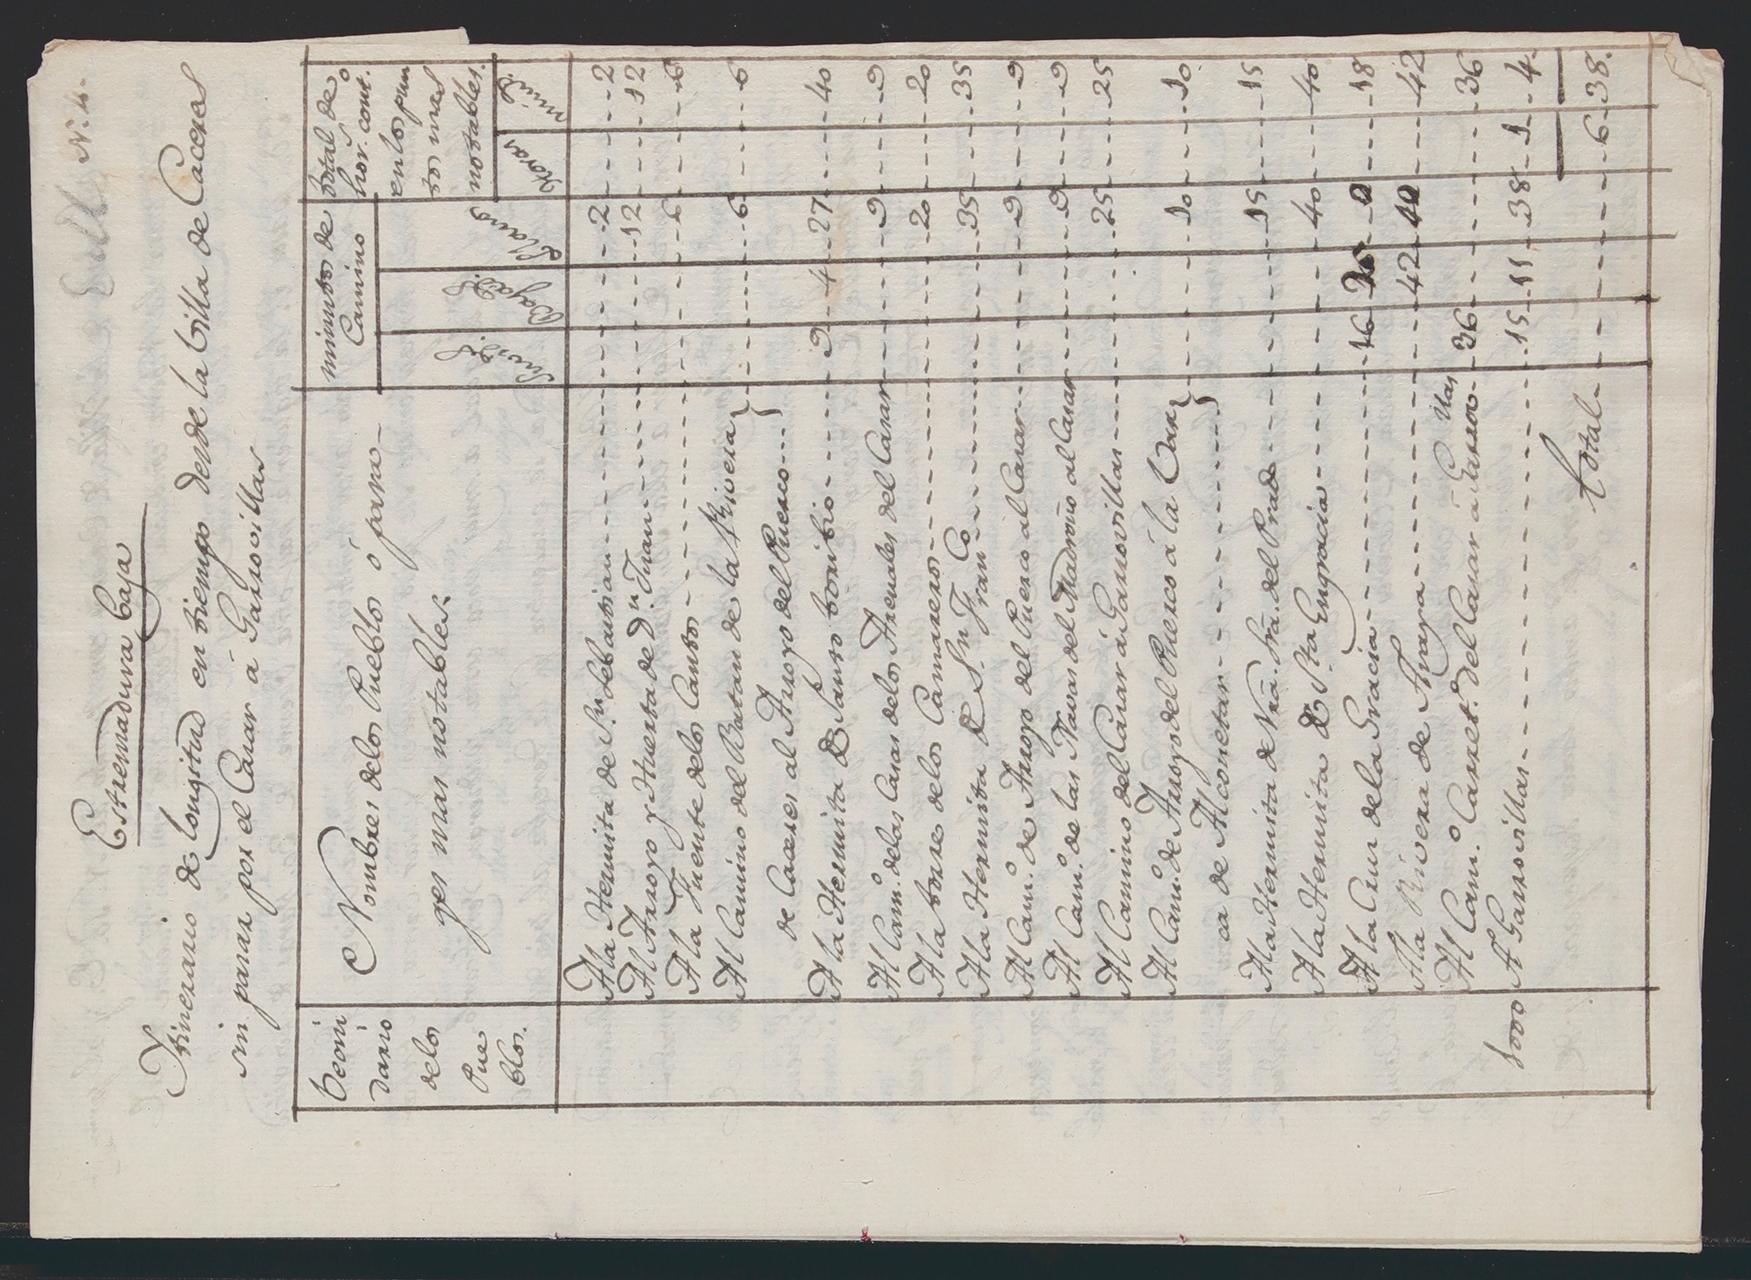 N. 4.
Estremadura baja
Itinerario de longitud en tiempo desde la billa de Caceres
sin parar por el Casar à Garrovillas
becin
dario
delos
Pue
blos.
Nombres delos Pueblos ó para-
ges mas notables.
minutos de
Camino
Suvi.da
Bajada
Llano
total de
hor.s cont.o
en los pun
tos mas
notables.
Horas
min.s
A la Hermita de S.n Sebastian 2 2
Al Arroyo y Huerta de D.n Juan 12 12
A la Fuente delos Cantos 6 6
Al Camino del Batan de la Rivera
de Caceres al Arroyo del Puerco 6 6
A la Hermita de Santo toribio 9 4 27 40
Al Cam.o delas Casas delos Arenales del Casar 9 9
A la torre delos Camareros 20 20
A la Hermita de S.n Fran.co 35 35
Al Cam.o de Arroyo del Puerco al Casar 9 9
Al Cam.o de las Navas del Madroño al Casar 9 9
Al Camino del Casar á Garrovillas 25 25
Al Cam.o de Arroyo del Puerco á la Bar
ca de Alconetar 10 10
A la Hermita de Nra. Sra. del Prado 15 15
A la Hermita de S.ta Engracia 40 40
A la Cruz dela Gracia 16 18
Ala Rivera de Araya 42 42
Al Cam.o Carret.o del Casar á Garrovillas 36 36
A Garrovillas 15 11 38 1 4
total 6 38.